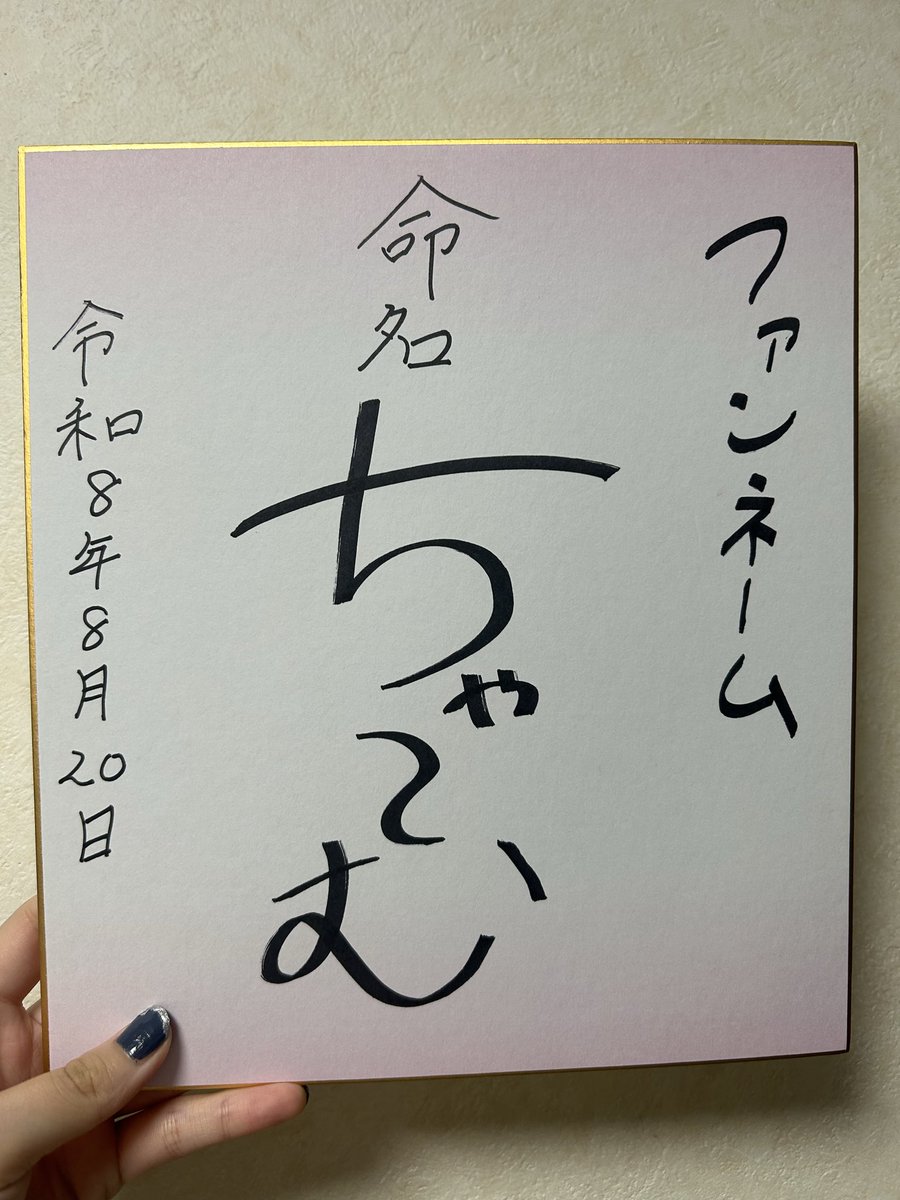 ファンネーム
命名
ちゃ〜む
令和8年8月20日